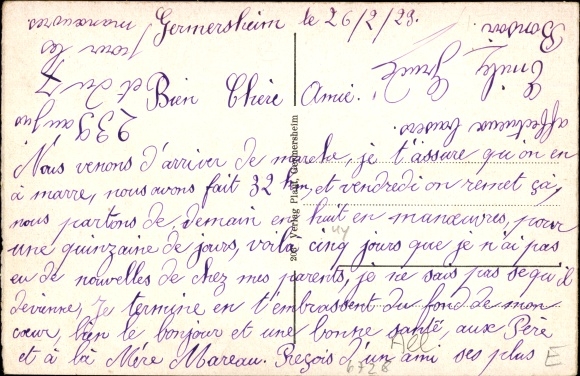 Germersheim le 26/2/29.
Bien Chère Amie.
Nous venons d'arriver de marche, je t'assure qu'on en
à marre, nous avons fait 32 km, et vendredi on remet çà,
nous partons de demain en huit en manœuvres, pour
une quinzaine de jours, voilà cinq jours que je n'ai pas
eu de nouvelles de chez mes parents, je ne sais pas se qu'il
devienne, Je termine en t'embrassent du fond de mon
cœur, bien le bonjour et une bonne santé, aux Père
et à la Mère Mareau. Reçois d'un ami ses plus
affectueux baisers.
Emile
Bonsoir
au jus
et du
pour les
manœuvres
Verlag Platz, Germersheim
All
6728
E